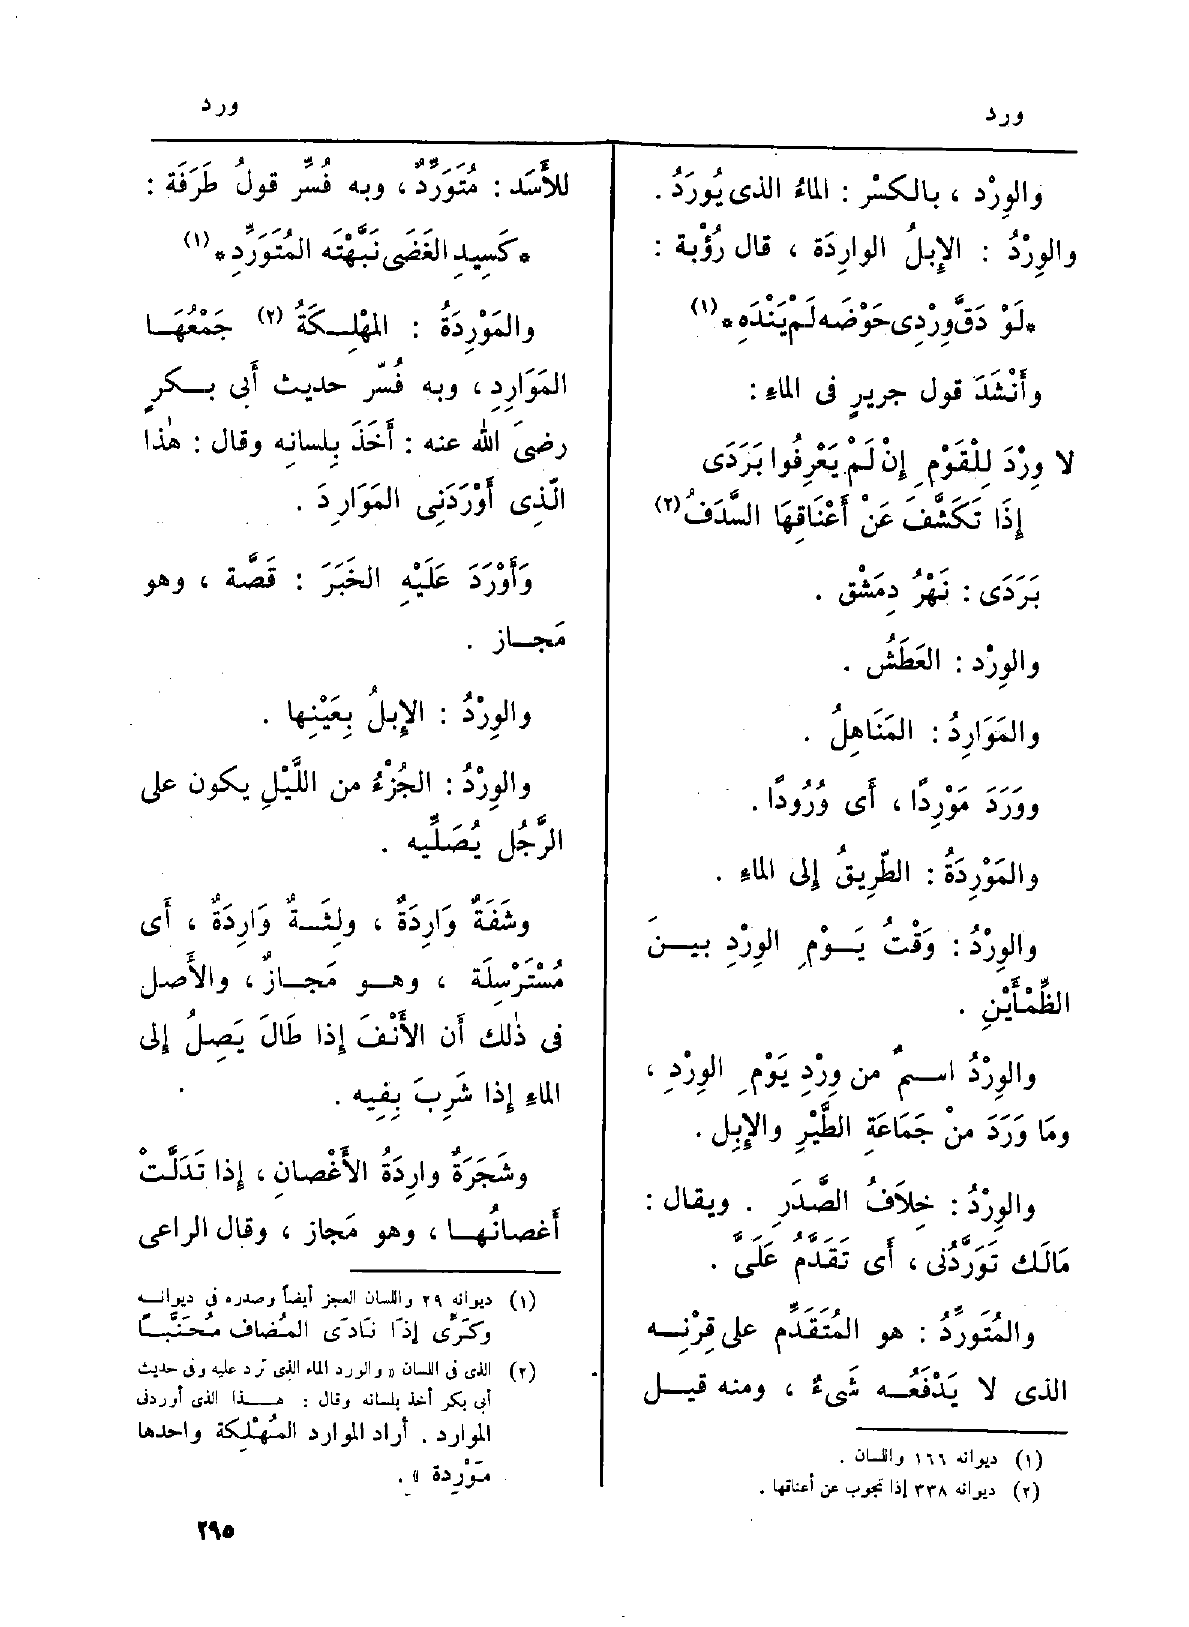 ورد
ورد
والوِرْد ، بالكسْر : الماءُ الذى يُورَدُ .
والوِرْدُ : الإِبلُ الوارِدَة ، قال رُؤْبة :
* لَوْ دَقَّ وِرْدِى حَوْضَه لم يَنْدَهِ * (١)
وأَنْشَدَ قول جريرٍ فى الماءِ :
لا وِرْدَ لِلْقَوْمِ إِنْ لَمْ يَعْرِفُوا بَرَدَى
إِذَا تَكَشَّفَ عَنْ أَعْنَاقِهَا السَّدَفُ (٢)
بَرَدَى : نَهْرُ دِمَشْق .
والوِرْد : العَطَشُ .
والمَوَارِدُ : المَنَاهِلُ .
ووَرَدَ مَوْرِدًا ، أَى وُرُودًا .
والمَوْرِدَةُ : الطّرِيقُ إِلى الماءِ .
والوِرْدُ : وَقْتُ يَوْمِ الوِرْدِ بينَ
الظِّمْأَيْنِ .
والوِرْدُ اسمٌ من وِرْدِ يَوْمِ الوِرْدِ ،
ومَا وَرَدَ منْ جَمَاعَةِ الطَّيْرِ والإِبِل .
والوِرْدُ : خِلاَفُ الصَّدَرِ . ويقال :
مَالَك تَوَرَّدُنى ، أَى تَقَدَّمُ عَلَىَّ .
والمُتَوَرِّدُ : هو المُتَقَدِّم على قِرْنِه
الذى لا يَدْفَعُه شىءٌ ، ومنه قيل
(١) ديوانه ١٦٦ واللسان .
(٢) ديوانه ٣٣٨ إذا تجوب عن أعناقها .
للأَسَد : مُتَوَرِّدٌ ، وبه فُسِّر قولُ طَرَفَة :
* كَسِيدِ الغَضَى نَبَّهْتَه المُتَوَرِّدِ * (١)
والمَوْرِدَةُ : المَهْلِكَةُ (٢) جَمْعُهَا
المَوَارِدِ ، وبه فُسِّر حديث أَبى بكرٍ
رضىَ الله عنه : أَخَذَ بِلسانِه وقال : هٰذا
الّذِى أَوْرَدَنِى المَوَارِدَ .
وأَوْرَدَ عَلَيْهِ الخَبَرَ : قَصَّة ، وهو
مَجاز .
والوِرْدُ : الإِبلُ بِعَيْنِها .
والوِرْدُ : الجُزْءُ من اللَّيْلِ يكون على
الرَّجُل يُصَلِّيه .
وشَفَةٌ وَارِدَةٌ ، ولِثَةٌ وَارِدَةٌ ، أَى
مُسْتَرْسِلَة ، وهو مَجازٌ ، والأَصل
فى ذٰلك أَن الأَنْفَ إِذا طَالَ يَصِلُ إِلى
الماءِ إِذا شَرِبَ بِفِيه .
وشَجَرَةٌ وارِدَةُ الأَغْصانِ ، إِذا تَدَلَّتْ
أَغصانُها ، وهو مَجاز ، وقال الراعى
(١) ديوانه ٢٩ واللسان العجز أيضاً وصدره فى ديوانه
وكَرِّى إذَا نَادَى المُضافُ مُحَنَّبًا
(٢) الذى فى اللسان « والورد الماء الذى ترد عليه وفى حديث
أبى بكر أخذ بلسانه وقال : هذا الذى أوردنى
الموارد . أراد الموارد المُهْلِكة واحدها
مَوْرِدة » .
٢٩٥